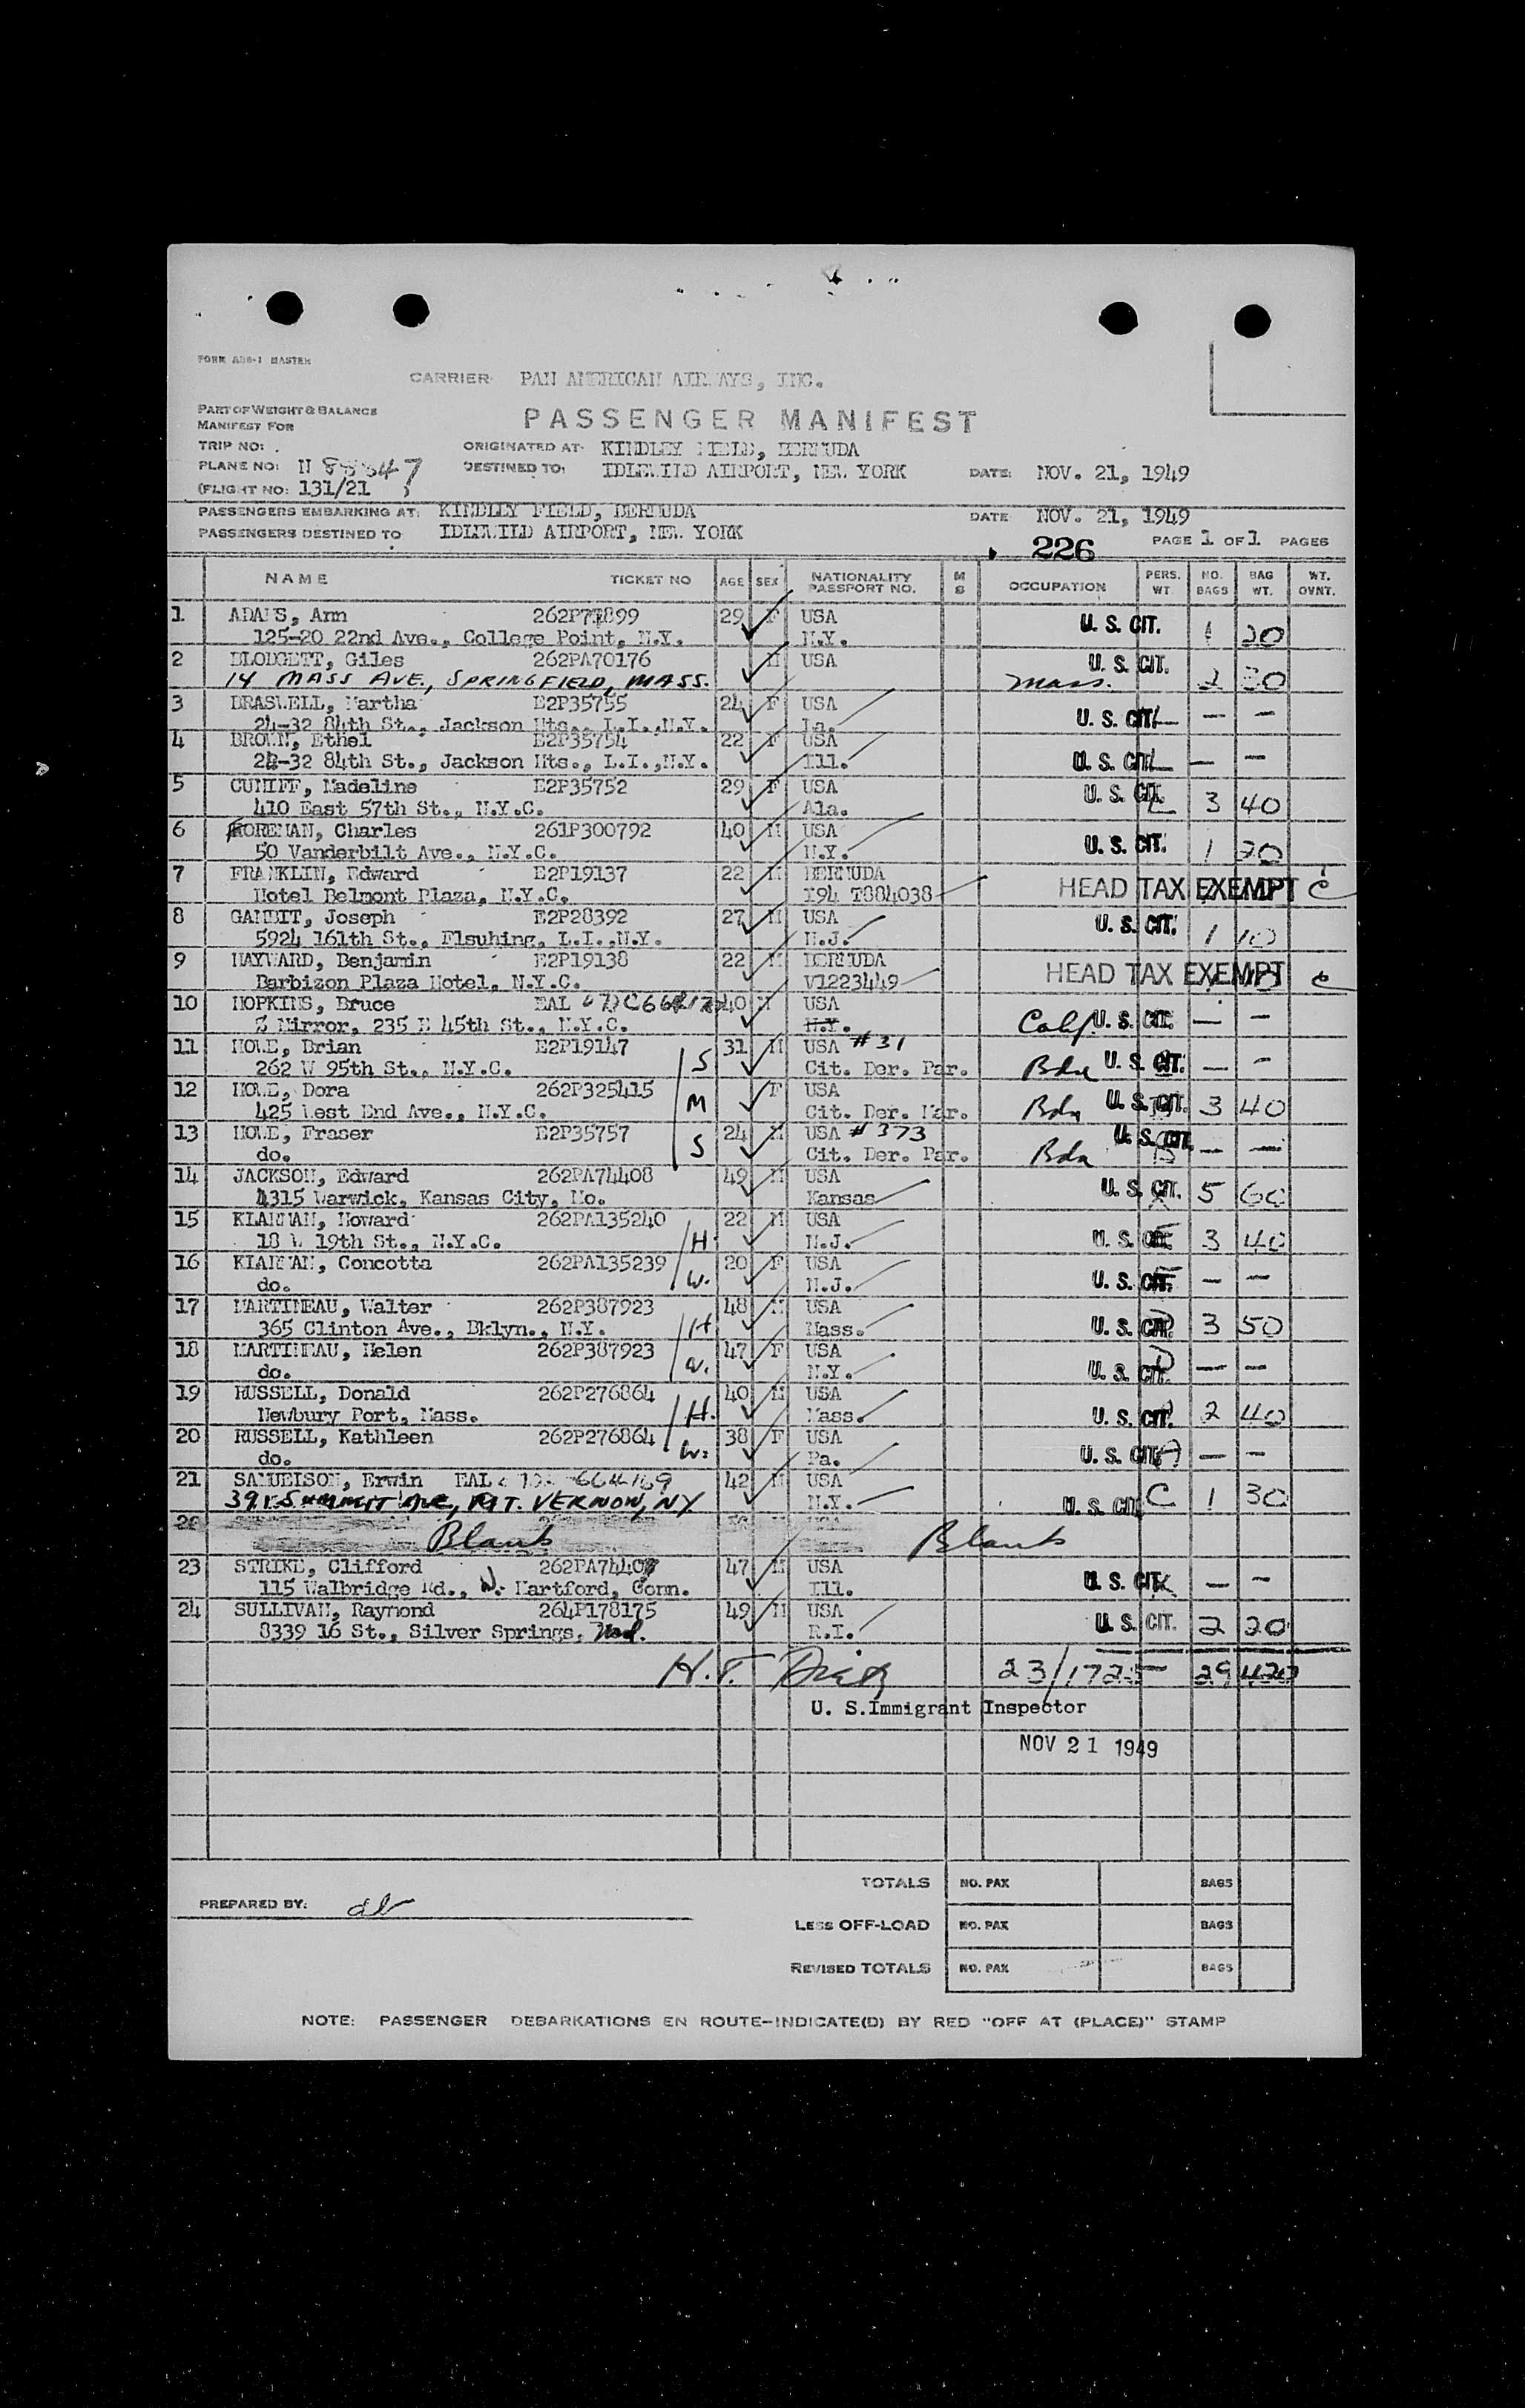 FORM ABB-1 MASTER
CARRIER PAN AMERICAN AIRWAYS, INC.
PART OF WEIGHT & BALANCE
MANIFEST FOR
PASSENGER MANIFEST
TRIP NO:
ORIGINATED AT: KINDLEY FIELD, BERMUDA
PLANE NO: N 88847
DESTINED TO: IDLEWILD AIRPORT, NEW YORK DATE: NOV. 21, 1949
(FLIGHT NO: 131/21 )
PASSENGERS EMBARKING AT: KINDLEY FIELD, BERMUDA DATE NOV. 21, 1949
PASSENGERS DESTINED TO IDLEWILD AIRPORT, NEW YORK
226 PAGE 1 OF 1 PAGES
NAME TICKET NO AGE SEX NATIONALITY PASSPORT NO. M S OCCUPATION PERS. WT. NO. BAGS BAG WT. WT. OVNT.
1 ADAMS, Ann 262P77899 29 F USA U. S. CIT. 1 20
125-20 22nd Ave., College Point, N.Y. N.Y.
2 BLODGETT, Giles 262PA70176 M USA U. S. CIT.
14 MASS AVE., SPRINGFIELD, MASS. Mass. 2 30
3 BRASWELL, Martha E2P35755 24 F USA U. S. CIT. — —
24-32 84th St., Jackson Hts., L.I.,N.Y. La.
4 BROWN, Ethel E2P35754 22 F USA
24-32 84th St., Jackson Hts., L.I.,N.Y. Ill. U. S. CIT. — —
5 CUNIFF, Madeline E2P35752 29 F USA U. S. CIT. 3 40
410 East 57th St., N.Y.C. Ala.
6 FOREMAN, Charles 261P300792 40 M USA U. S. CIT. 1 20
50 Vanderbilt Ave., N.Y.C. N.Y.
7 FRANKLIN, Edward E2P19137 22 M BERMUDA HEAD TAX EXEMPT
Hotel Belmont Plaza, N.Y.C. I94 T884038
8 GAMBIT, Joseph E2P28392 27 M USA U. S. CIT. 1 10
5924 161th St., Flsuhing, L.I.,N.Y. N.J.
9 HAYWARD, Benjamin E2P19138 22 M BERMUDA HEAD TAX EXEMPT
Barbizon Plaza Hotel, N.Y.C. V1223449
10 HOPKINS, Bruce EAL 40 M USA
% Mirror, 235 E 45th St., N.Y.C. N.Y. Calif. U. S. CIT. — —
11 HOWE, Brian E2P19147 S 31 M USA #31
262 W 95th St., N.Y.C. Cit. Der. Par. Bda U. S. CIT. — —
12 HOWE, Dora 262P325415 M F USA
425 West End Ave., N.Y.C. Cit. Der. Mar. Bda U. S. CIT. 3 40
13 HOWE, Fraser E2P35757 S 24 M USA #373 U. S. CIT. — —
do. Cit. Der. Par. Bda
14 JACKSON, Edward 262PA74408 49 M USA U. S. CIT. 5 60
4315 Warwick, Kansas City, Mo. Kansas
15 KLARMAN, Howard 262PA135240 22 M USA
18 W 19th St., N.Y.C. H. N.J. U. S. CIT. 3 40
16 KLARMAN, Concotta 262PA135239 20 F USA
do. W. N.J. U. S. CIT. — —
17 MARTINEAU, Walter 262P387923 48 M USA
365 Clinton Ave., Bklyn., N.Y. H Mass. U. S. CIT. 3 50
18 MARTINEAU, Helen 262P387923 47 F USA
do. W. N.Y. U. S. CIT. — —
19 RUSSELL, Donald 262P276864 40 M USA
Newbury Port, Mass. H. Mass. U. S. CIT. 2 40
20 RUSSELL, Kathleen 262P276864 38 F USA
do. W. Pa. U. S. CIT. — —
21 SAMUELSON, Erwin EAL 42 M USA
391 SUMMIT AVE, MT. VERNON, NY N.Y. U. S. CIT. C 1 30
Blank Blank
23 STRIKE, Clifford 262PA74407 47 M USA
115 Walbridge Rd., W. Hartford, Conn. Ill. U. S. CIT. — —
24 SULLIVAN, Raymond 264P178175 49 M USA U. S. CIT. 2 20
8339 16 St., Silver Springs, Md. R.I.
H.T. 23/1725 29 420
U. S. Immigrant Inspector
NOV 21 1949
TOTALS NO. PAX BAGS
PREPARED BY:
LESS OFF-LOAD NO. PAX BAGS
REVISED TOTALS NO. PAX BAGS
NOTE: PASSENGER DEBARKATIONS EN ROUTE—INDICATE(D) BY RED "OFF AT (PLACE)" STAMP